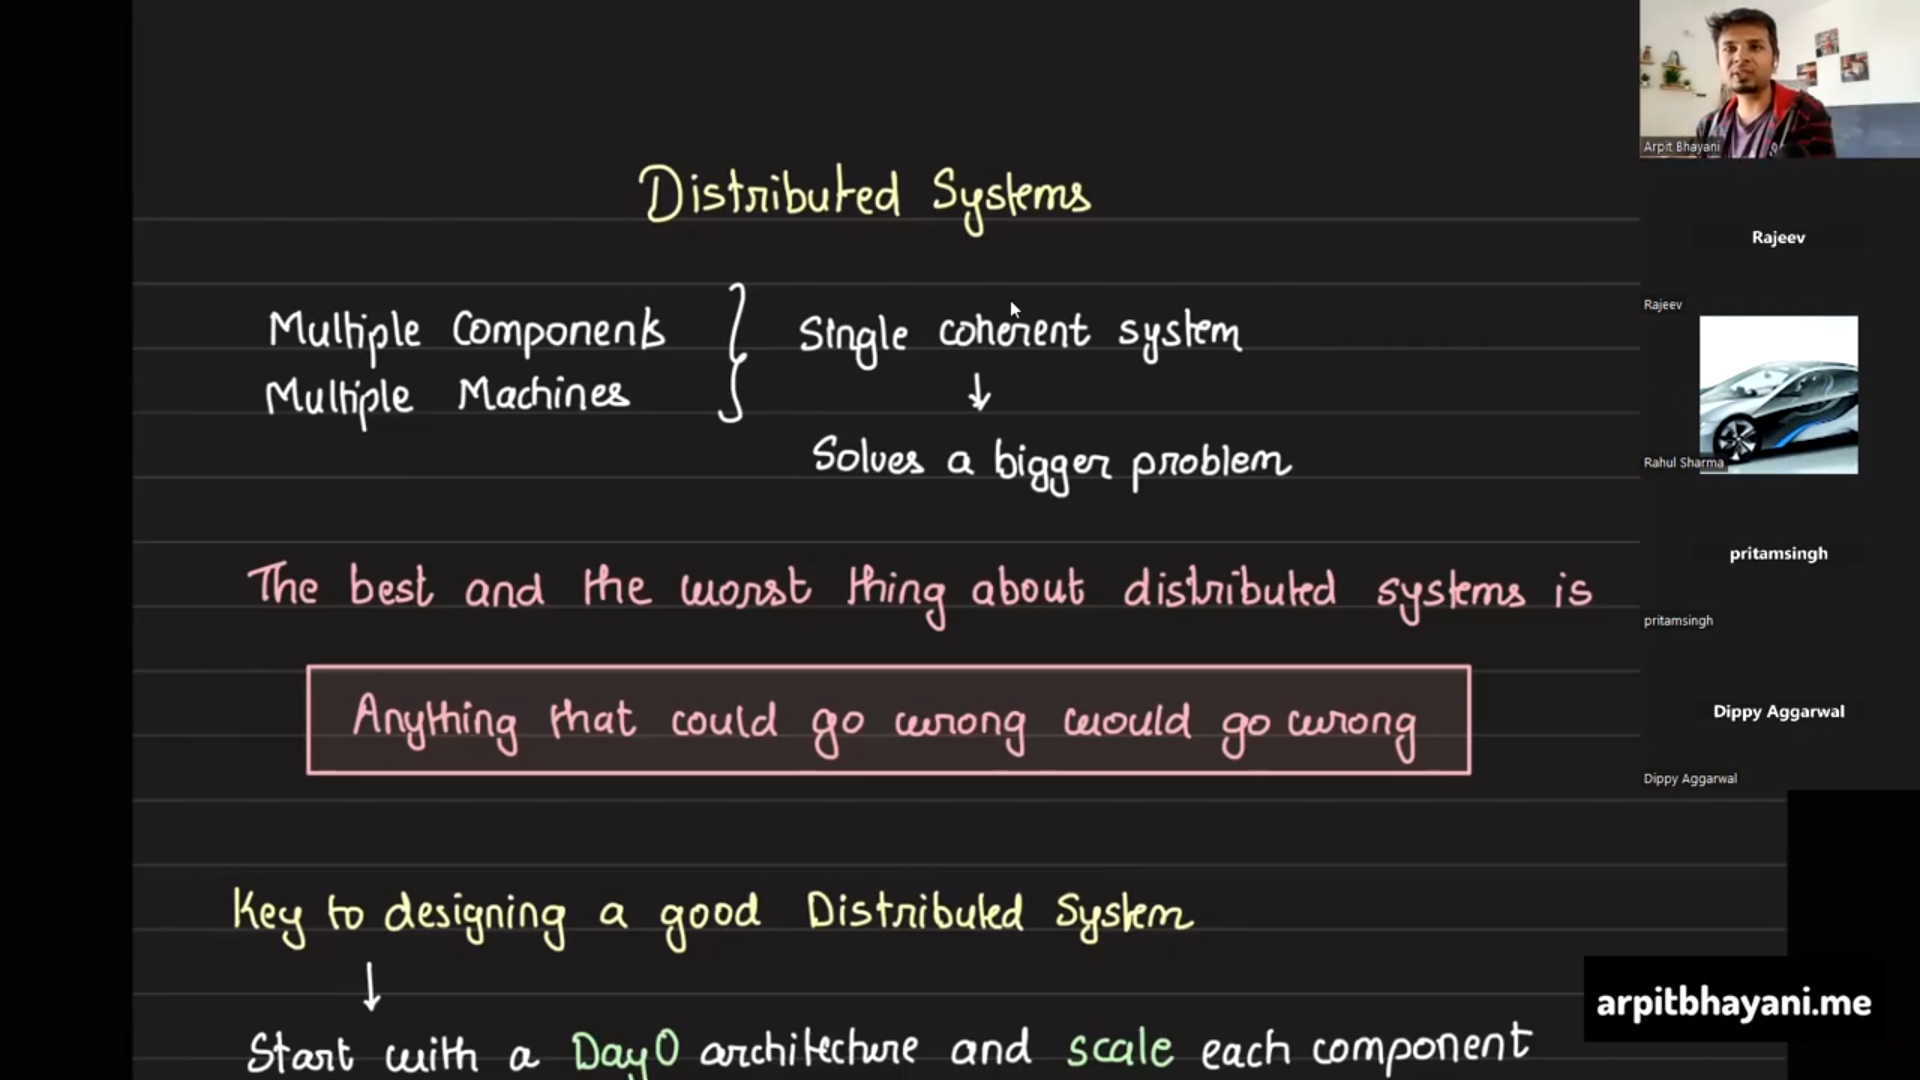 Distributed Systems
Multiple Components
Multiple Machines
Single coherent system
↓
Solves a bigger problem
The best and the worst thing about distributed systems is
Anything that could go wrong would go wrong
Key to designing a good Distributed System
↓
Start with a Day0 architecture and scale each component
Arpit Bhayani
Rajeev
Rajeev
Rahul Sharma
pritamsingh
pritamsingh
Dippy Aggarwal
Dippy Aggarwal
arpitbhayani.me